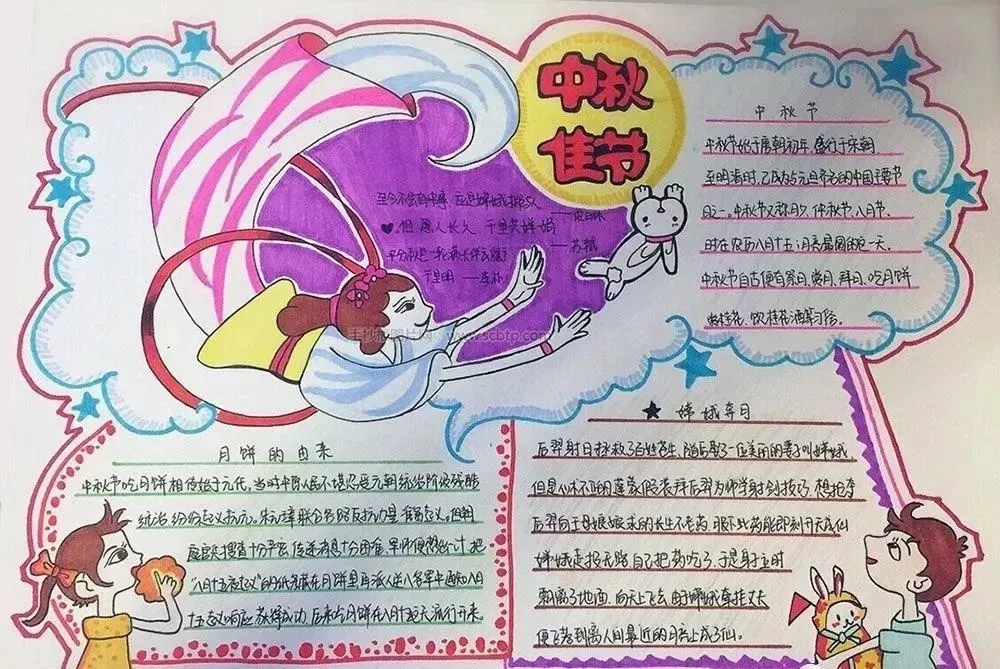 中秋
佳节
至今不会 中事,应是嫦娥掷与人
——皮日休
但愿人长久 千里共婵娟
——苏轼
平分秋色一轮满长伴云衢
千里明 ——李朴
手抄报图片网 www.scbtp.com
中秋节
中秋节始于唐朝初年,盛行于宋朝,
至明清时,已成为与元旦齐名的中国主要节
日之一。中秋节又称月夕、仲秋节、八月节。
时在农历八月十五;月亮最圆的这一天.
中秋节自古便有祭月、赏月、拜月、吃月饼
赏桂花、饮桂花酒等习俗。
月饼的由来
中秋节吃月饼相传始于元代,当时中原人民不堪忍受元朝统治阶级残酷
统治纷纷起义抗元。朱元璋联合各路反抗力量准备起义,但朝
庭官兵搜查十分严密,传递消息十分困难.军师便想出一计,把
“八月十五夜起义”的纸条藏在月饼里再派人送入各军中通知八月
十五起义响应,获得成功,后来吃月饼在八月十五这天流行开来.
嫦娥奔月
后羿射日拯救了百姓苍生,随后娶了一位美丽的妻子叫嫦娥,
但是心术不正的蓬蒙假装拜后羿为师学射剑技巧,想抢夺
后羿向王母娘娘求的长生不老药,服下此药能即刻升天成仙
嫦娥走投无路自己把药吃了,于是身立时
飘离了地面,向天上飞去,由于嫦娥牵挂丈夫
便飞落到离人间最近的月亮上成了仙。